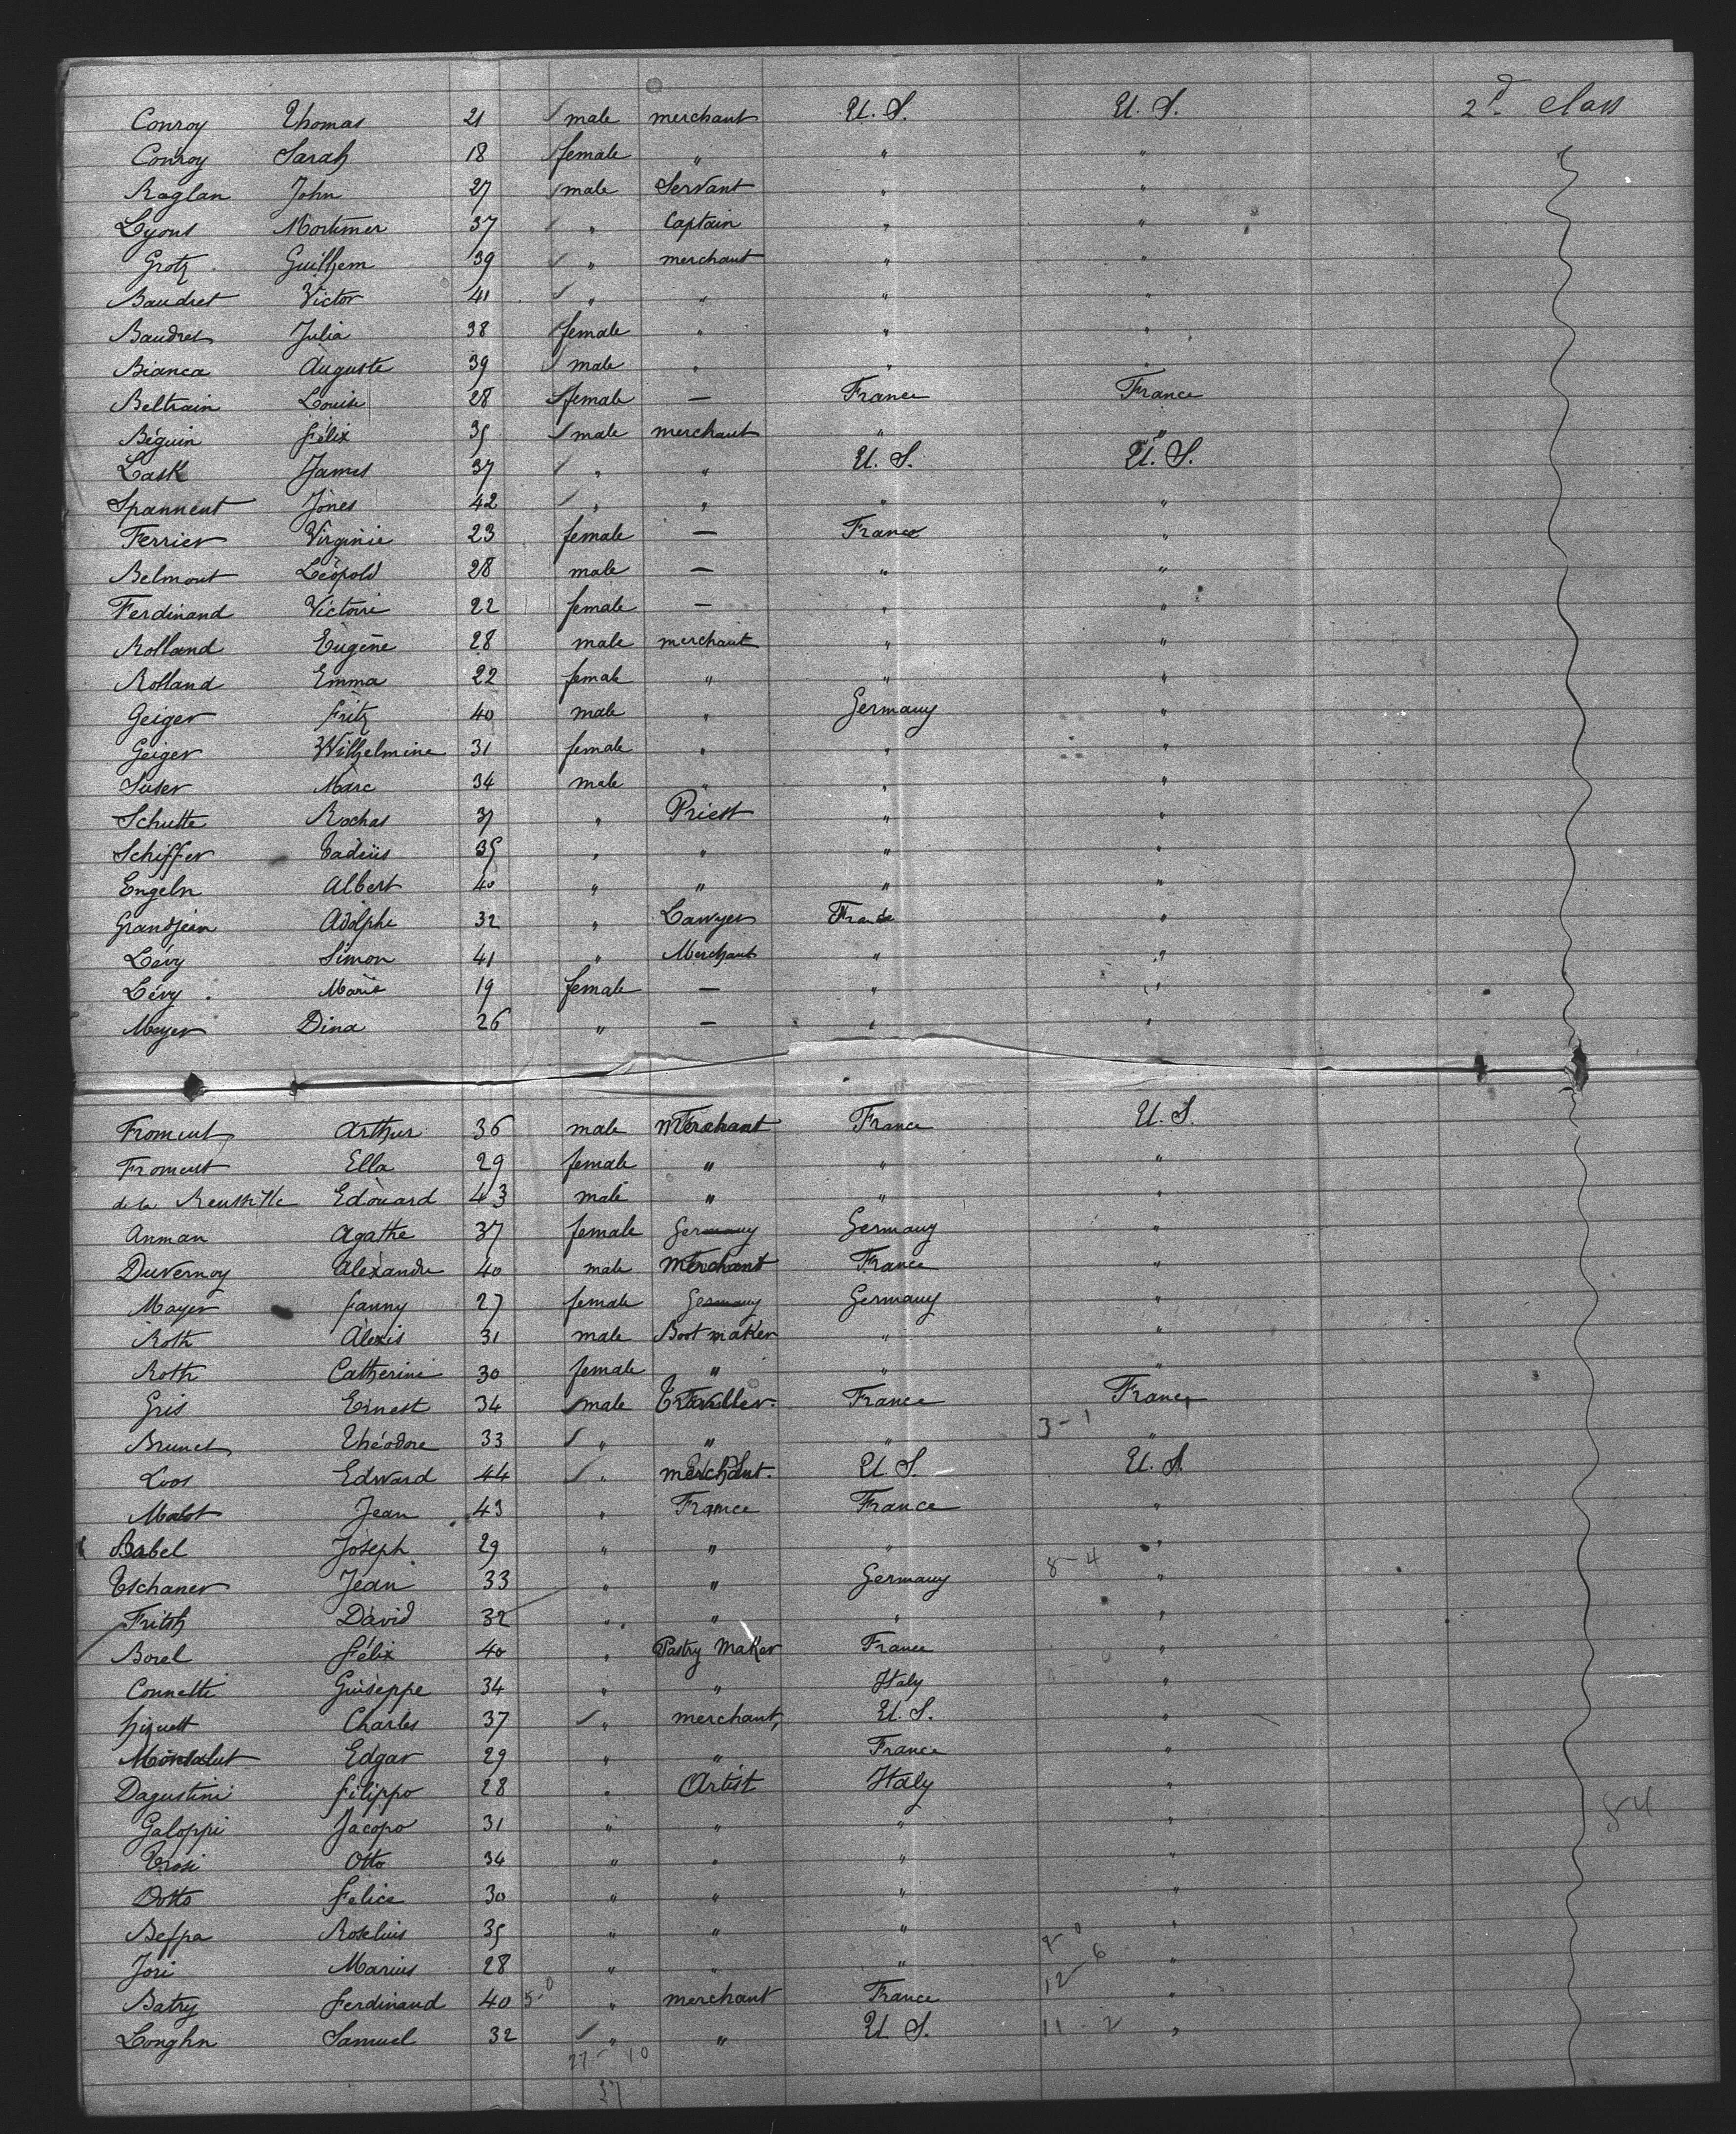 2d class
Conroy Thomas 21 male merchant U. S. U. S.
Conroy Sarah 18 female " " "
Raglan John 27 male Servant " "
Lyons Mortimer 37 " Captain " "
Grotz Guilhem 39 " merchant " "
Baudret Victor 41 " " " "
Baudret Julia 38 female " " "
Bianca Auguste 39 male " " "
Beltrain Louise 28 female — France France
Béguin Félix 35 male merchant " "
Lask James 37 " " U. S. U. S.
Spanneut Jones 42 " " " "
Ferrier Virginie 23 female — France "
Belmont Léopold 28 male — " "
Ferdinand Victoire 22 female — " "
Rolland Eugène 28 male merchant " "
Rolland Emma 22 female " " "
Geiger Fritz 40 male " Germany "
Geiger Wilhelmine 31 female " " "
Suser Marc 34 male " " "
Schutte Rochas 37 " Priest " "
Schiffer Tadeüs 35 " " " "
Engeln Albert 40 " " " "
Grandjean Adolphe 32 " Lawyer France "
Lévy Simon 41 " Merchant " "
Lévy Marie 19 female — " "
Meyer Dina 26 " — " "
Froment Arthur 36 male Merchant France U. S.
Froment Ella 29 female " " "
de la Edouard 43 male " " "
Anman Agathe 37 female Germany Germany "
Duvernoy Alexandre 40 male Merchant France "
Mayer Fanny 27 female Germany Germany "
Roth Alexis 31 male Boot maker " "
Roth Catherine 30 female " " "
Gris Ernest 34 male Traveller France France
3-1
Brunet Théodore 33 " " " "
Loos Edward 44 " merchant. U. S. U. S.
Malot Jean 43 " France France "
Babel Joseph 29 " " " "
8-4
Tschaner Jean 33 " " Germany "
Fritsh David 32 " " " "
Borel Félix 40 " Pastry Maker France "
Connetti Guiseppe 34 " " Italy "
Charles 37 " merchant, U. S. "
Edgar 29 " " France "
Dagustini Filippo 28 " Artist Italy "
84
Galoppi Jacopo 31 " " " "
Trosi Otto 34 " " " "
Dotto Felice 30 " " " "
Beppa Roselius 35 " " " "
Jori Marius 28 " " " "
12-6
Batry Ferdinand 40 5-0 " merchant France "
Longhn Samuel 32 " " U. S. 11-2 "
27-10
37